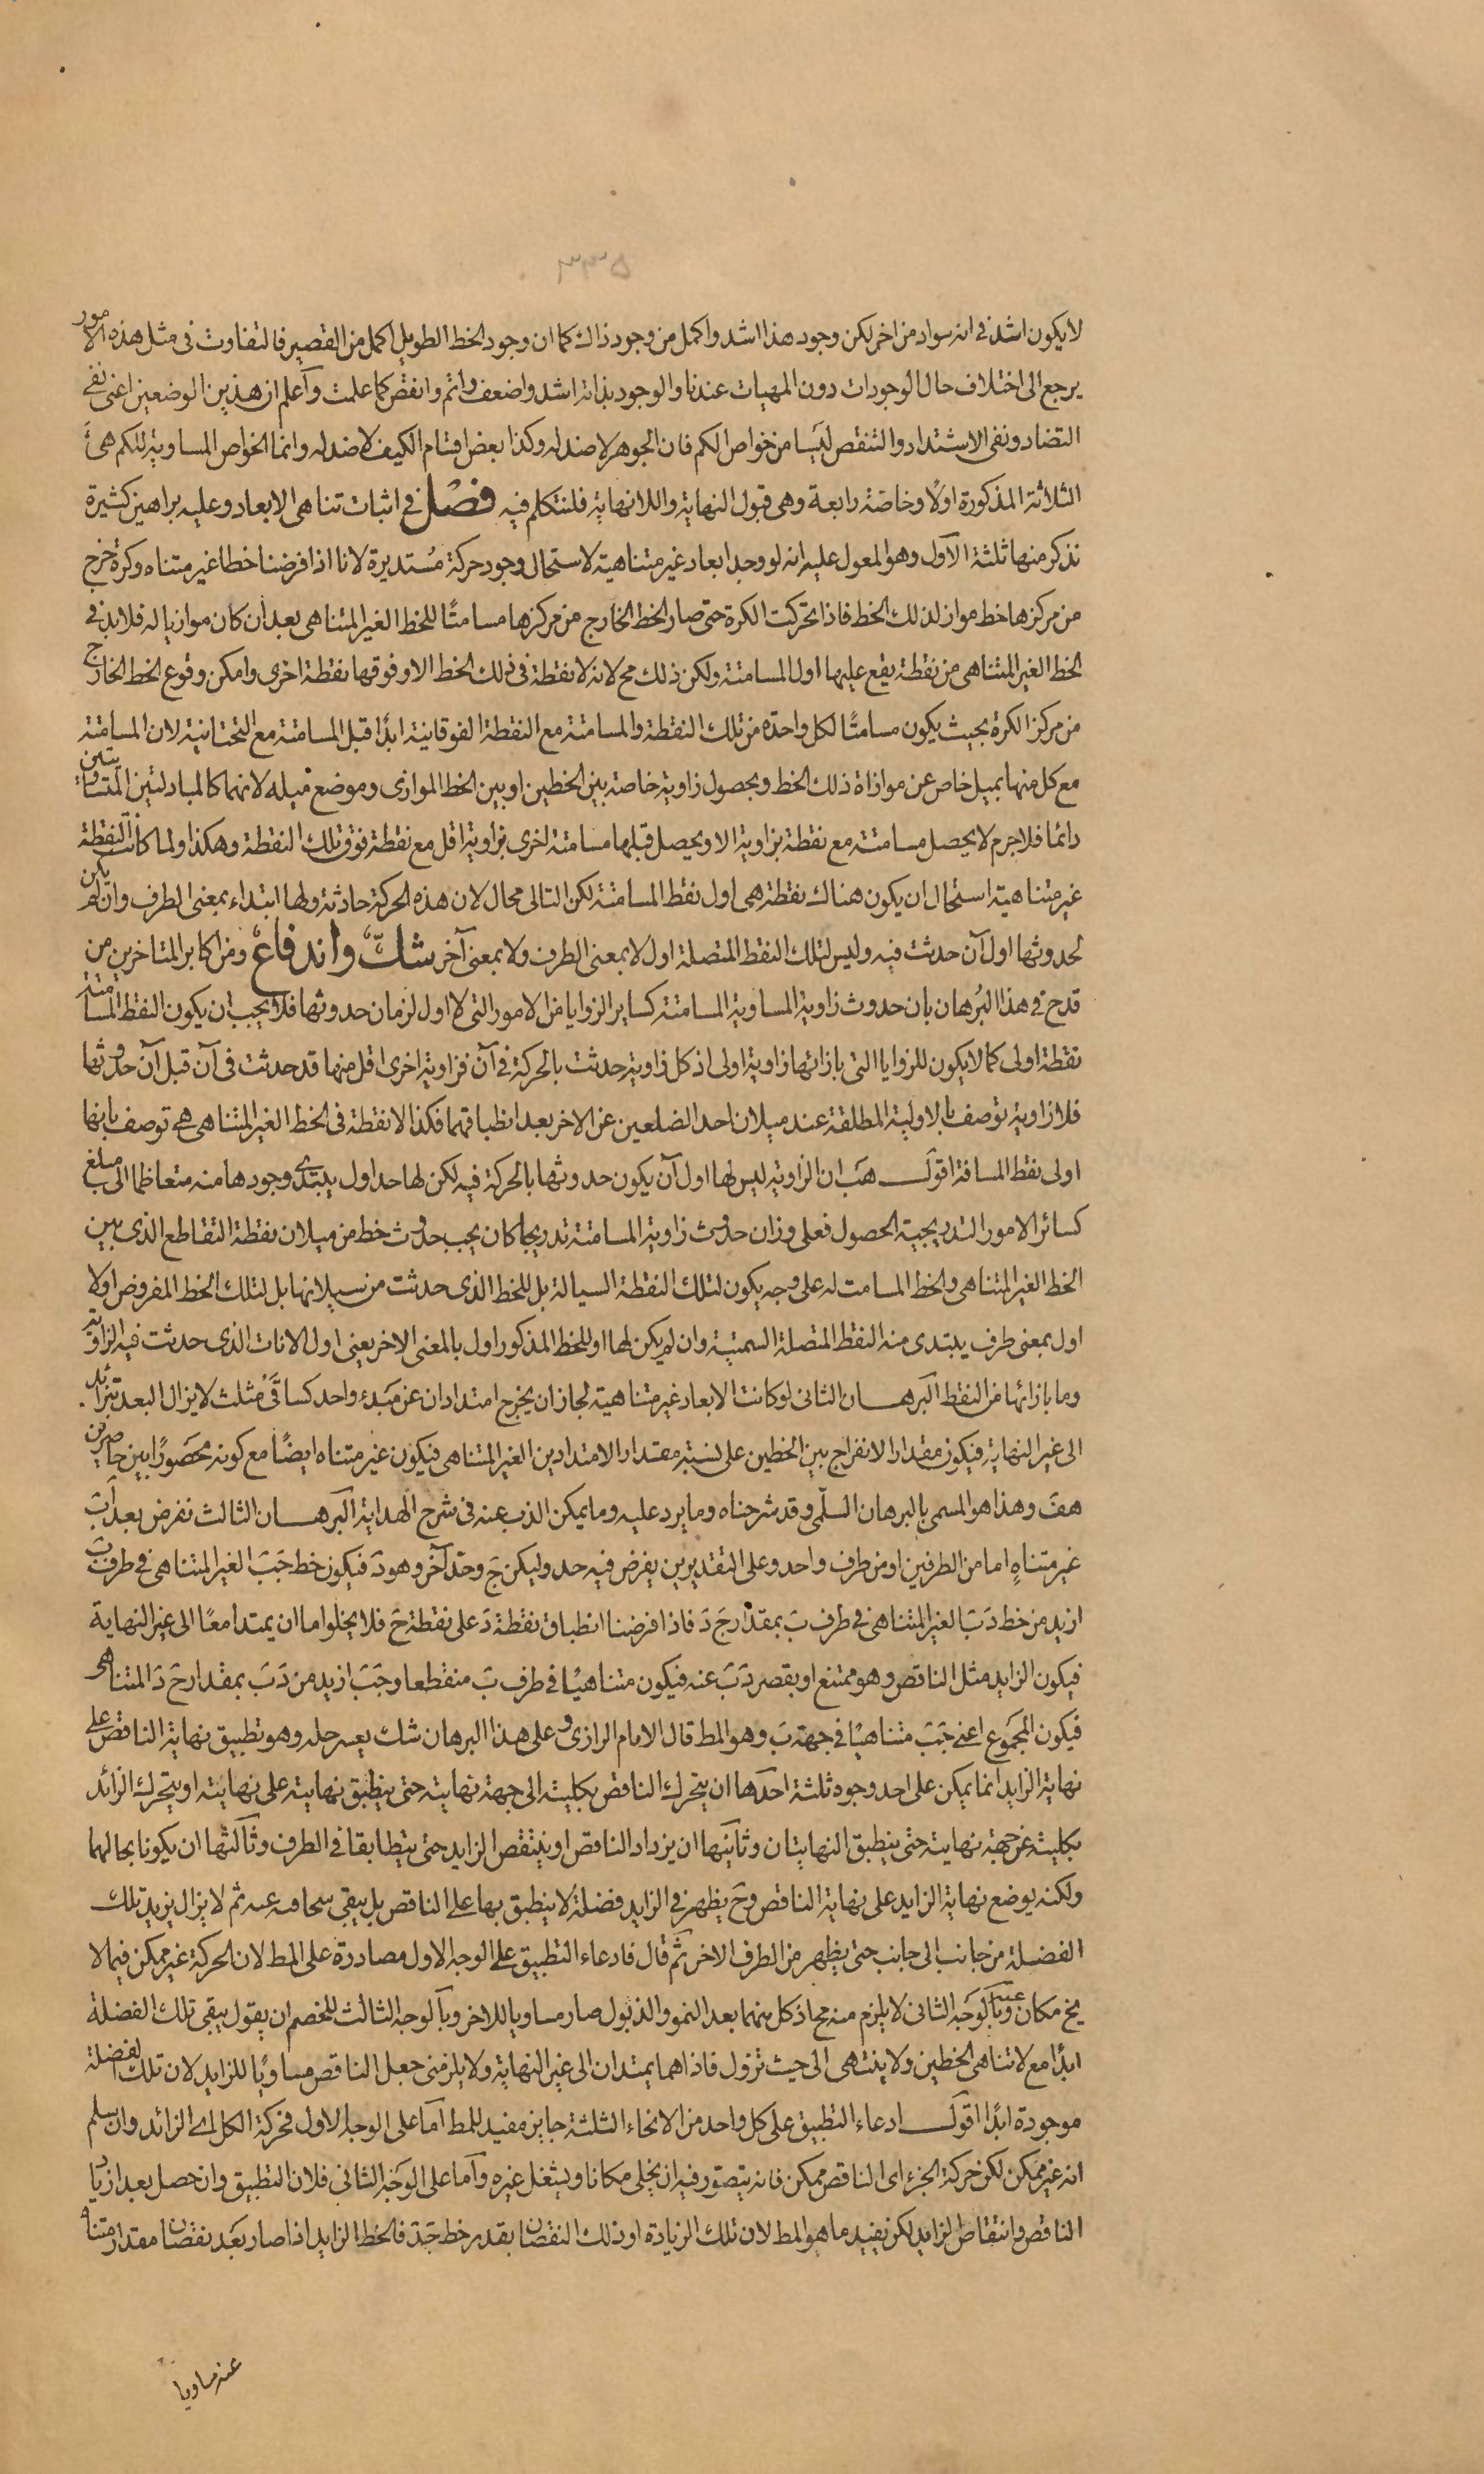 ۵۳۳۶
لا يكون اشد فى انه سواد من اخر لكن وجود هذا اشد واكمل من وجود ذاك كما ان وجود الخط الطويل اكمل من القصير فالتفاوت فى مثل هذه الامور
يرجع الى اختلاف حال الوجودات دون المهيات عندنا والوجود بذاته اشد واضعف واتم وانقص كما علمت وآعلم ان هذين الوضعين اعنى نفى
التضاد ونفى الاشتداد والتنقص ليسا من خواص الكم فان الجوهر لا ضد له وكذا بعض اقسام الكيف لا ضد له وانما الخواص المساوية للكم هى
الثلاثة المذكورة اولًا وخاصّة رابعة وهى قبول النهاية واللانهاية فلنتكلم فيه فصل فى اثبات تناهى الابعاد وعليه براهين كثيرة
نذكر منها ثلثة الآول وهو المعول عليه انه لو وجد ابعاد غير متناهية لاستحال وجود حركة مُستديرة لانا اذا فرضنا خطا غير متناه وكرة خرج
من مركزها خط مواز لذلك الخط فاذا تحركت الكرة حتى صار الخط الخارج من مركزها مسامتًا للخط الغير المتناهى بعد ان كان موازيا له فلابد فى
الخط الغير المتناهى من نقطة يقع عليها اول المسامتة ولكن ذلك مح لانه لا نقطة فى ذلك الخط الا وفوقها نقطة اخرى وامكن وقوع الخط الخارج
من مركز الكرة بحيث يكون مسامتًا لكل واحدة من تلك النقطة والمسامتة مع النقطة الفوقانية ابدًا قبل المسامتة مع التحتانية لان المسامتة
مع كل منها بميل خاص عن موازاة ذلك الخط وبحصول زاوية خاصة بين الخطين او بين الخط الموازى وموضع ميله لانهما كالمبادلتين المتساويتين
دائما فلاجرم لا يحصل مسامتة مع نقطة بزاوية الا ويحصل قبلها مسامتة اخرى بزاوية اقل مع نقطة فوق تلك النقطة وهكذا ولما كانت النقطة
غير متناهية استحال ان يكون هناك نقطة هى اول نقط المسامتة لكن التالى محال لان هذه الحركة حادثة ولها ابتداء بمعنى الطرف وان لم يكن
لحدوثها اول آن حدثت فيه وليس لتلك النقط المتصلة اول لا بمعنى الطرف ولا بمعنى آخر شك واندفاع ومن اكابر المتاخرين من
قدح فى هذا البُرهان بان حدوث زاوية المساوية المسامتة كساير الزوايا من الامور التى لا اول لزمان حدوثها فلا يجب ان يكون النقط المسامتة
نقطة اولى كما لا يكون للزوايا التى بازائها زاوية اولى اذ كل زاوية حدثت بالحركة فى آن فزاوية اخرى اقل منها قد حدثت فى آن قبل آن حدوثها
فلا زاوية توصف بالاولية المطلقة عند ميلان احد الضلعين عن الاخر بعد انطباقهما فكذا لا نقطة فى الخط الغير المتناهى هى توصف بانها
اولى نقط المسافة اقول هَب ان الزاوية ليس لها اول آن يكون حدوثها بالحركة فيه لكن لها حد اول يبتدى وجودها منه متعاظما الى مبلغ
كسائر الامور التدريجية الحصول فعلى وزان حدوث زاوية المسامتة تدريجا كان يجب حدوث خط من ميلان نقطة التقاطع الذى بين
الخط الغير المتناهى والخط المسامت له على وجه يكون لتلك النقطة السيالة بل للخط الذى حدثت من سيلانها بل لتلك الخط المفروض اولا
اول بمعنى طرف يبتدى منه النقط المتصلة السمتية وان لم يكن لها او للخط المذكور اول بالمعنى الاخر يعنى اول الانات الذى حدثت فيه الزاوية
وما بازائها من النقط آلبرهان الثانى لو كانت الابعاد غير متناهية لجاز ان يخرج امتدادان عن مَبدء واحد كساقَى مُثلث لا يزال البعد يتزائد
الى غير النهاية فيكون مقدار الانفراج بين الخطين على نسبة مقدار الامتدادين الغير المتناهى فيكون غير متناه ايضًا مع كونه محصورًا بين حاصرين
هف وهذا هو المسمى بالبرهان السلّمى وقد شرحناه وما يرد عليه وما يمكن الذب عنه فى شرح الهداية آلبرهان الثالث نفرض بعد آب
غير متناهٍ اما من الطرفين او من طرف واحد وعلى التقديرين يفرض فيه حد وليكن جَ وحدّ آخر وهو دَ فيكون خط جَبَ الغير المتناهى فى طرف بَ
ازيد من خط دَبَ الغير المتناهى فى طرف بَ بمقدار جَ دَ فاذا فرضنا انطباق نقطة دَ على نقطة جَ فلا يخلو اما ان يمتدا معًا الى غير النهاية
فيكون الزايد مثل الناقص وهو ممتنع او يقصر دَبَ عنه فيكون متناهيًا فى طرف بَ منقطعا وجَبَ ازيد من دَبَ بمقدار جَ دَ المتناهى
فيكون المجموع اعنى جَبَ متناهيًا فى جهة بَ وهو المط قال الامام الرازى وعلى هذا البرهان شك يعسر حله وهو تطبيق نهاية الناقص على
نهاية الزايد انما يمكن على احد وجوه ثلثة احدها ان يتحرك الناقص بكليته الى جهة نهايته حتى ينطبق نهايته على نهايته او يتحرك الزائد
بكليته عن جهة نهايته حتى ينطبق النهايتان وثآنيها ان يزداد الناقص او ينتقص الزايد حتى يتطابقا فى الطرف وثآلثها ان يكونا بحالهما
ولكنه يوضع نهاية الزايد على نهاية الناقص وح يظهر فى الزايد فضلة لا ينطبق بها على الناقص بل يبقى عنه ثم لا يزال يزيد تلك
الفضلة من جانب الى جانب حتى يظهر من الطرف الاخر ثم قال فادعاء التطبيق على الوجه الاول مصادرة على المط لان الحركة غير ممكن فيما لا
يخ مكان عنه وبآلوجه الثانى لا يلزم منه مح اذ كل منهما بعد النمو والذبول صار مساويا للاخر وبآلوجه الثالث للخصم ان يقول يبقى تلك الفضلة
ابدًا مع لا تناهى الخطين ولا ينتهى الى حيث تزول فاذا هما يمتدان الى غير النهاية ولا يلزمنى جعل الناقص مساويًا للزايد لان تلك الفضلة
موجودة ابدًا اقول ادعاء التطبيق على كل واحد من الانحاء الثلثة جايز مفيد للمط آما على الوجه الاول فحركة الكل اى الزائد وان سلم
انه غير ممكن لكن حركة الجزء اى الناقص ممكن فانه يتصوّر فيه ان يخلى مكانا ويشغل غيره وآما على الوجه الثانى فلان التطبيق وان حصل بعد ازدياد
الناقص وانتقاص الزايد لكن يفيد ما هو المط لان تلك الزيادة او ذلك النقصان بقدر خط جَدَ فالخط الزايد اذا صار بعد نقصان مقدار متناه
عنه مساويا